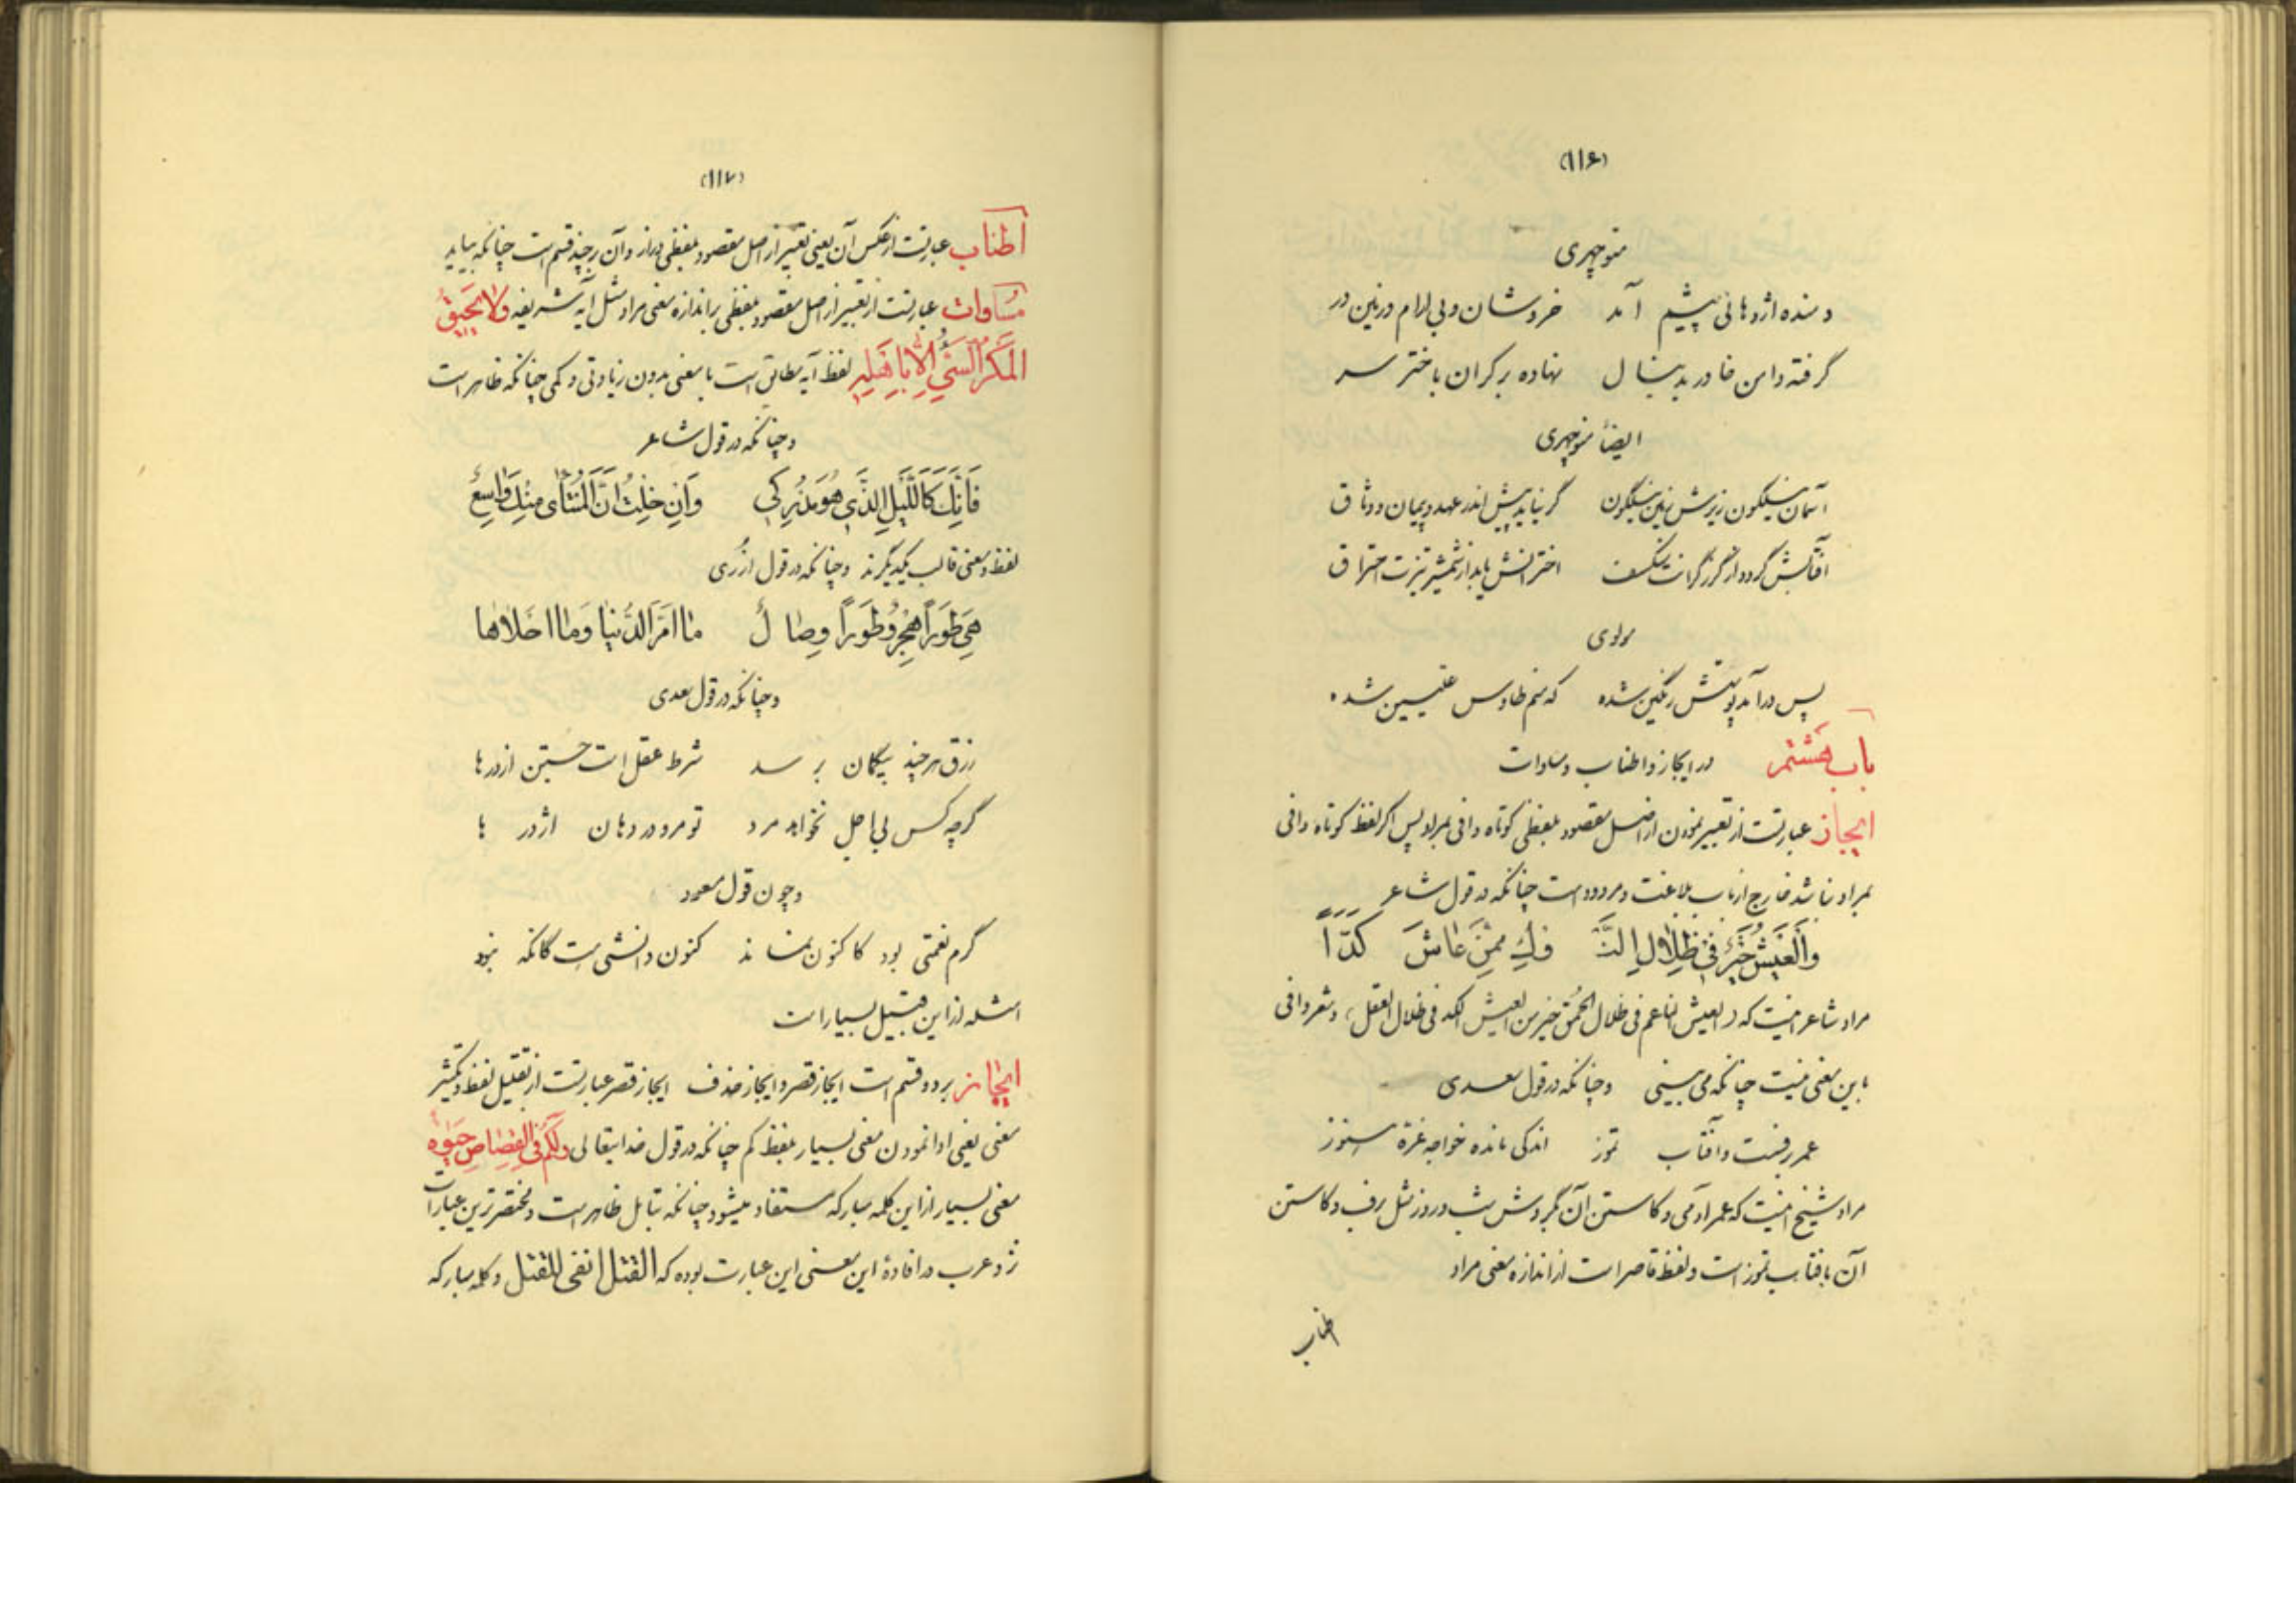 (۱۱۶)
منوچهری
دمنده اژدهائی پیشم آمد خروشان و بی آرام و زمین در
گرفته دامن خاور بدنبال نهاده بر کران باختر سر
ایضاً منوچهری
آسمان نیلگون زیرش زمین نیلگون گر نیاید پیش اندر عهد و پیمان و وثاق
آفتابش گردد از گرز گرانت منکسف اخترانش یابد از شمشیر تیزت احتراق
مولوی
پس درآمد پوستش رنگین شده که منم طاوس علیین شده
باب هشتم در ایجاز و اطناب و مساوات
ایجاز عبارتست از تعبیر نمودن از اصل مقصود بلفظی کوتاه وافی بمراد پس اگر لفظ کوتاه وافی
بمراد نباشد خارج از باب بلاغت و مردود است چنانکه در قول شاعر
وَالْعَيْشُ خَيْرٌ فِي ظِلَالِ النَّوكِ مِمَّنْ عَاشَ كَدّاً
مراد شاعر اینست که (العیش الناعم فی ظلال الحمق خیر من العیش الکد فی ظلال العقل) و شعر وافی
باین معنی نیست چنانکه می بینی وچنانکه در قول سعدی
عمر برفست و آفتاب تموز اندکی مانده خواجه غره هنوز
مراد شیخ اینست که عمر آدمی و کاستن آن بگردش شب و روز مثل برف و کاستن
آن بآفتاب تموز است و لفظ قاصر است از اندازه معنی مراد
اطناب
(۱۱۷)
اطناب عبارتست از عکس آن یعنی تعبیر از اصل مقصود بلفظی دراز و آن بر چند قسم است چنانکه بیاید
مساوات عبارتست از تعبیر از اصل مقصود بلفظی باندازه معنی مراد مثل آیه شریفه وَلَا يَحِيقُ
الْمَكْرُ السَّيِّئُ إِلَّا بِأَهْلِهِ لفظ آیه مطابق است با معنی بدون زیادتی و کمی چنانکه ظاهر است
وچنانکه در قول شاعر
فَإِنَّكَ كَاللَّيْلِ الَّذِي هُوَ مُدْرِكِي وَإِنْ خِلْتُ أَنَّ الْمُنْتَأَى مِنْكَ وَاسِعٌ
لفظ و معنی قالب یکدیگرند وچنانکه در قول ازری
هِيَ طَوْراً هَجْرٌ وَطَوْراً وِصَالٌ مَا أَمَرَّ الدُّنْيَا وَمَا أَحْلَاهَا
وچنانکه در قول سعدی
رزق هر چند بیگمان برسد شرط عقل است جستن از درها
گرچه کس بی اجل نخواهد مرد تو مرو در دهان اژدرها
وچون قول مسعود
گرم نعمتی بود کاکنون نماند کنون دانشی هست کانگه نبود
امثله از این قبیل بسیار است
ایجاز بر دو قسم است ایجاز قصر و ایجاز حذف ایجاز قصر عبارتست از تقلیل لفظ و تکثیر
معنی یعنی ادا نمودن معنی بسیار بلفظ کم چنانکه در قول خدایتعالی وَلَكُمْ فِي الْقِصَاصِ حَيٰوةٌ
معنی بسیار از این کلمه مبارکه مستفاد میشود چنانکه بتأمل ظاهر است و مختصرترین عبارات
نزد عرب در افادهٔ این معنی این عبارت بوده که القتل انفی للقتل و کلمه مبارکه